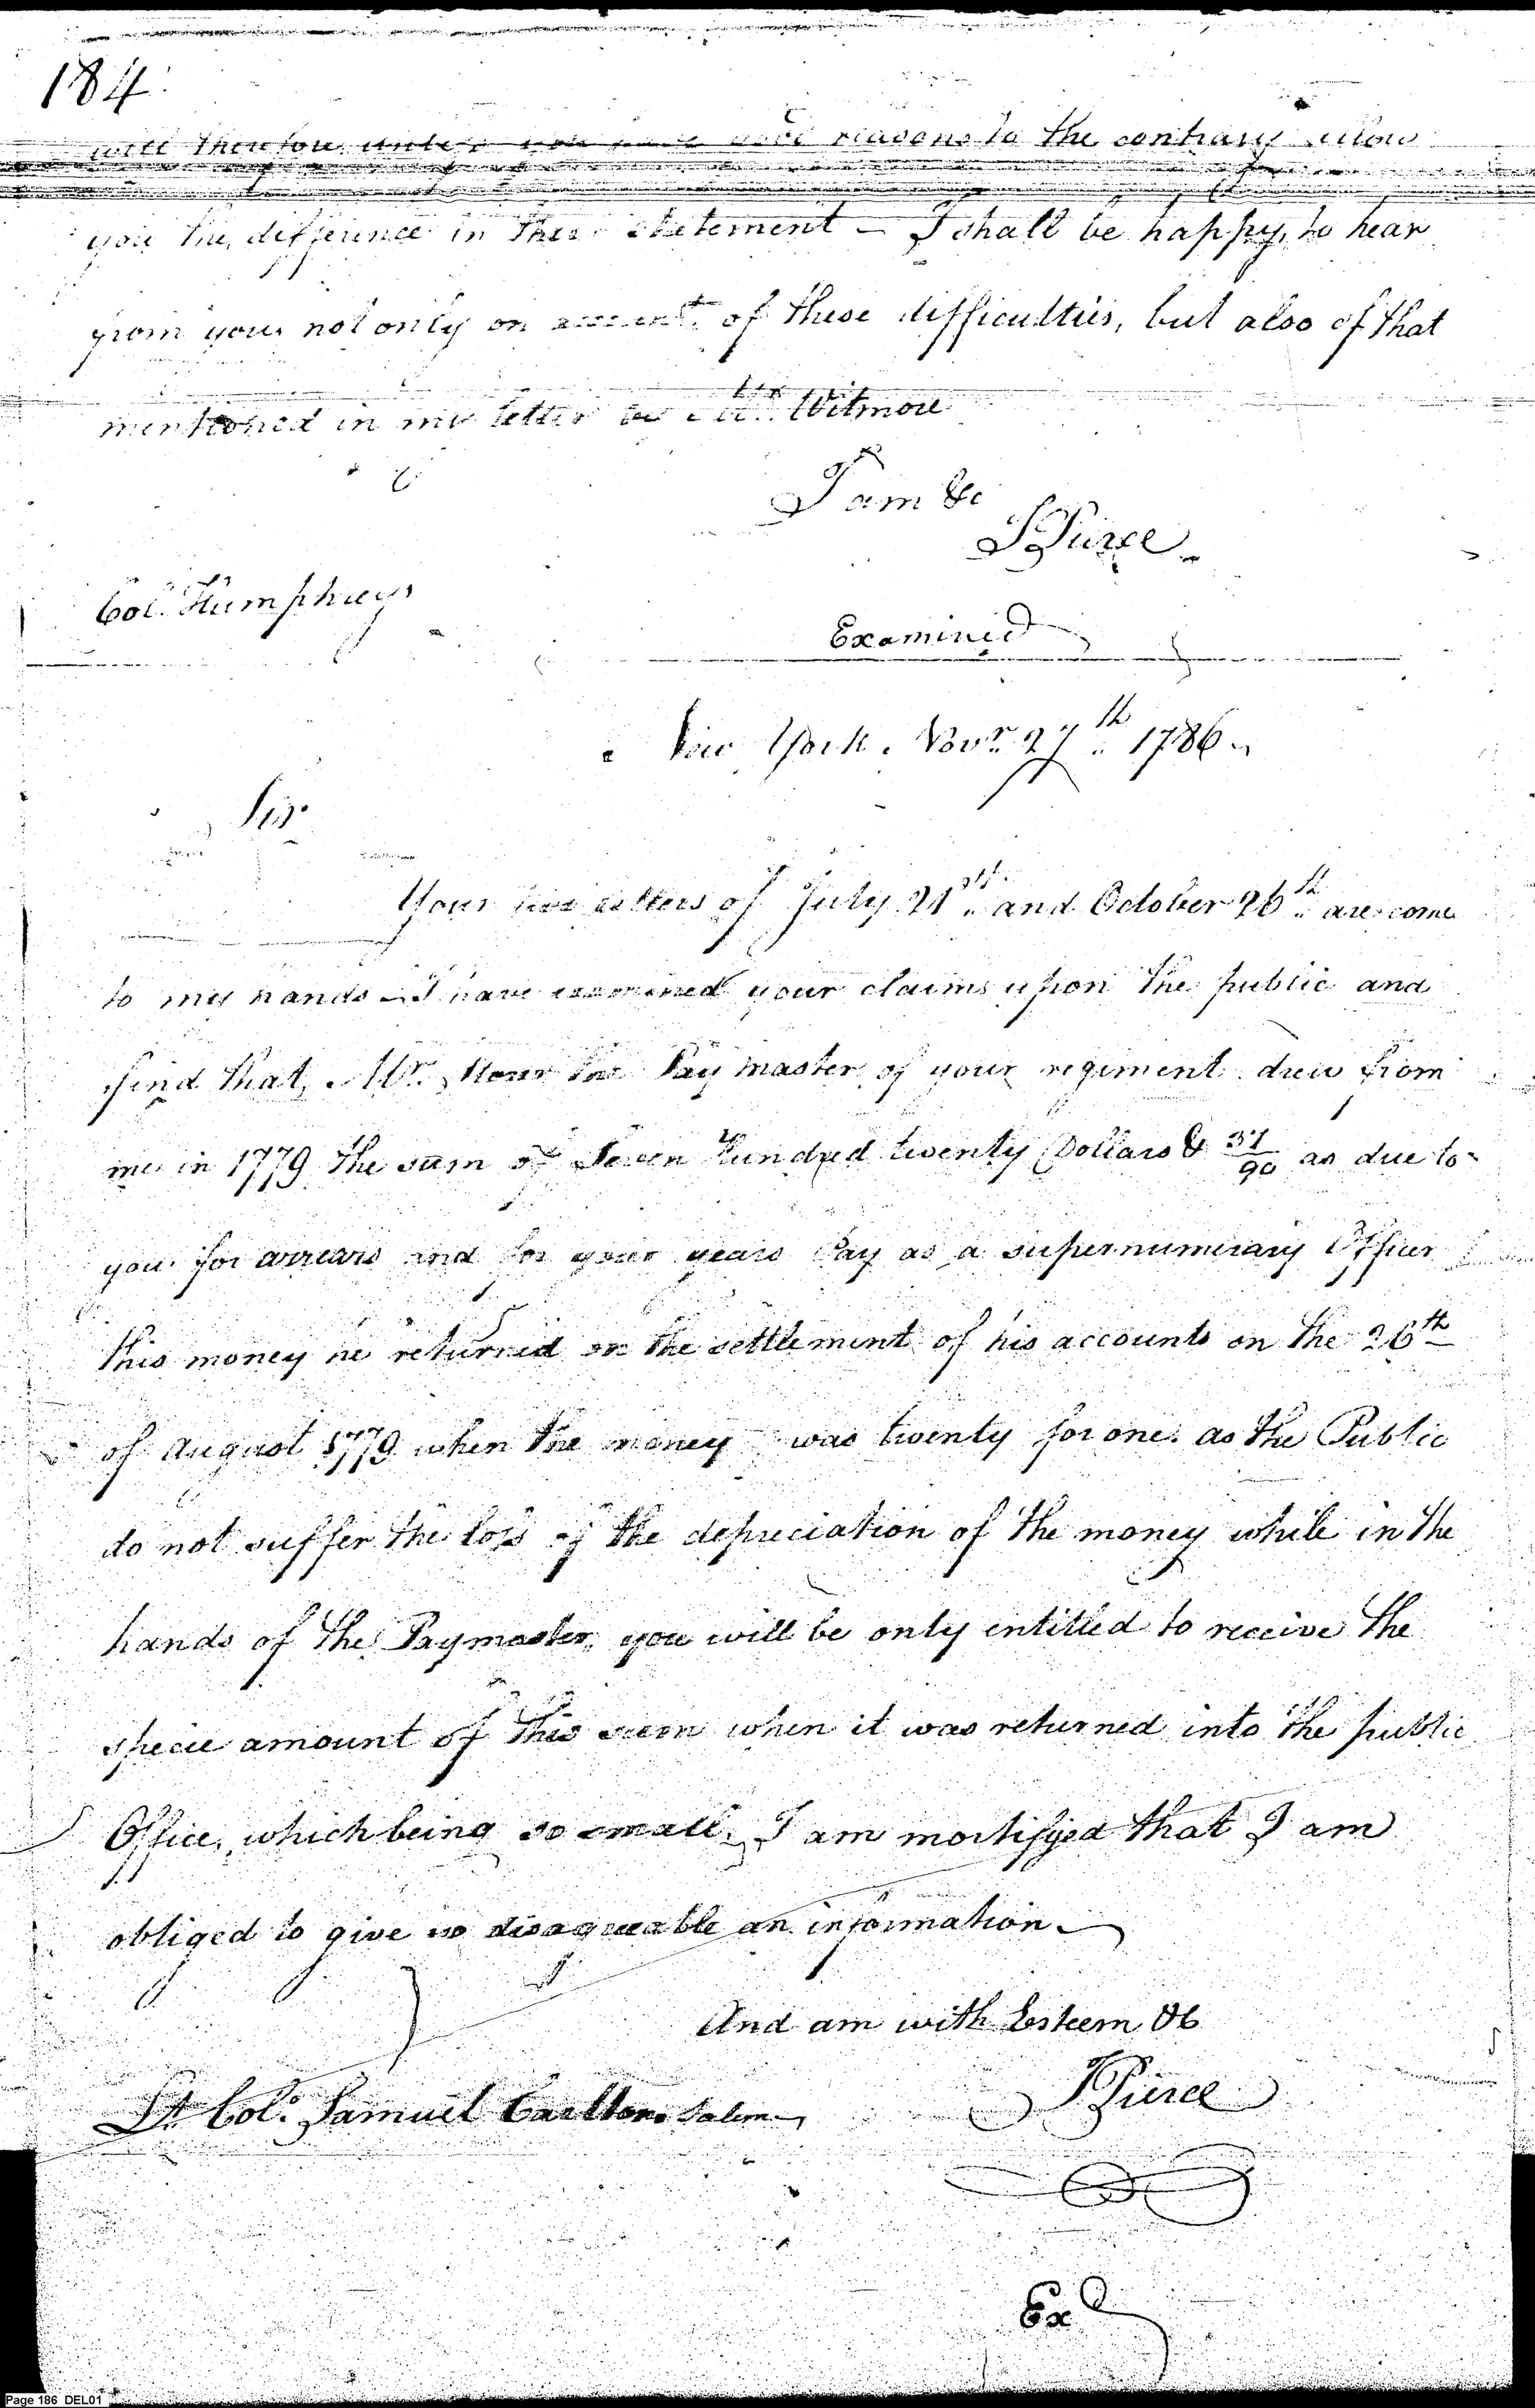 184.
will therefore unless you have good reasons to the contrary allow
you the difference in their statement — I shall be happy, to hear
from you not only on account of these difficulties, but also of that
mentioned in my letter by Witmore
I am &c
JPierce
Col. Humphreys
Examined
New York. Novr. 27th 1786.
Sir
Your two letters of July 21st. and October 26th are come
to my hands — I have examined your claims upon the public and
find that, Mr. the Pay master of your regiment drew from
me in 1779 the sum of Seven hundred twenty Dollars & /90 as due to
you for arrears and for your years Pay as a supernumerary Officer
this money he returned on the settlement of his accounts on the 26th
of August 1779 when the money was twenty for one. as the Public
do not suffer the loss of the depreciation of the money while in the
hands of the Paymaster, you will be only entitled to receive the
specie amount of this sum when it was returned into the public
Office, which being so small, I am mortifyed that I am
obliged to give so disagreeable an information —
And am with Esteem &c
Lt Col. Samuel Carlton Salem
JPierce
Exd
Page 186 DEL01